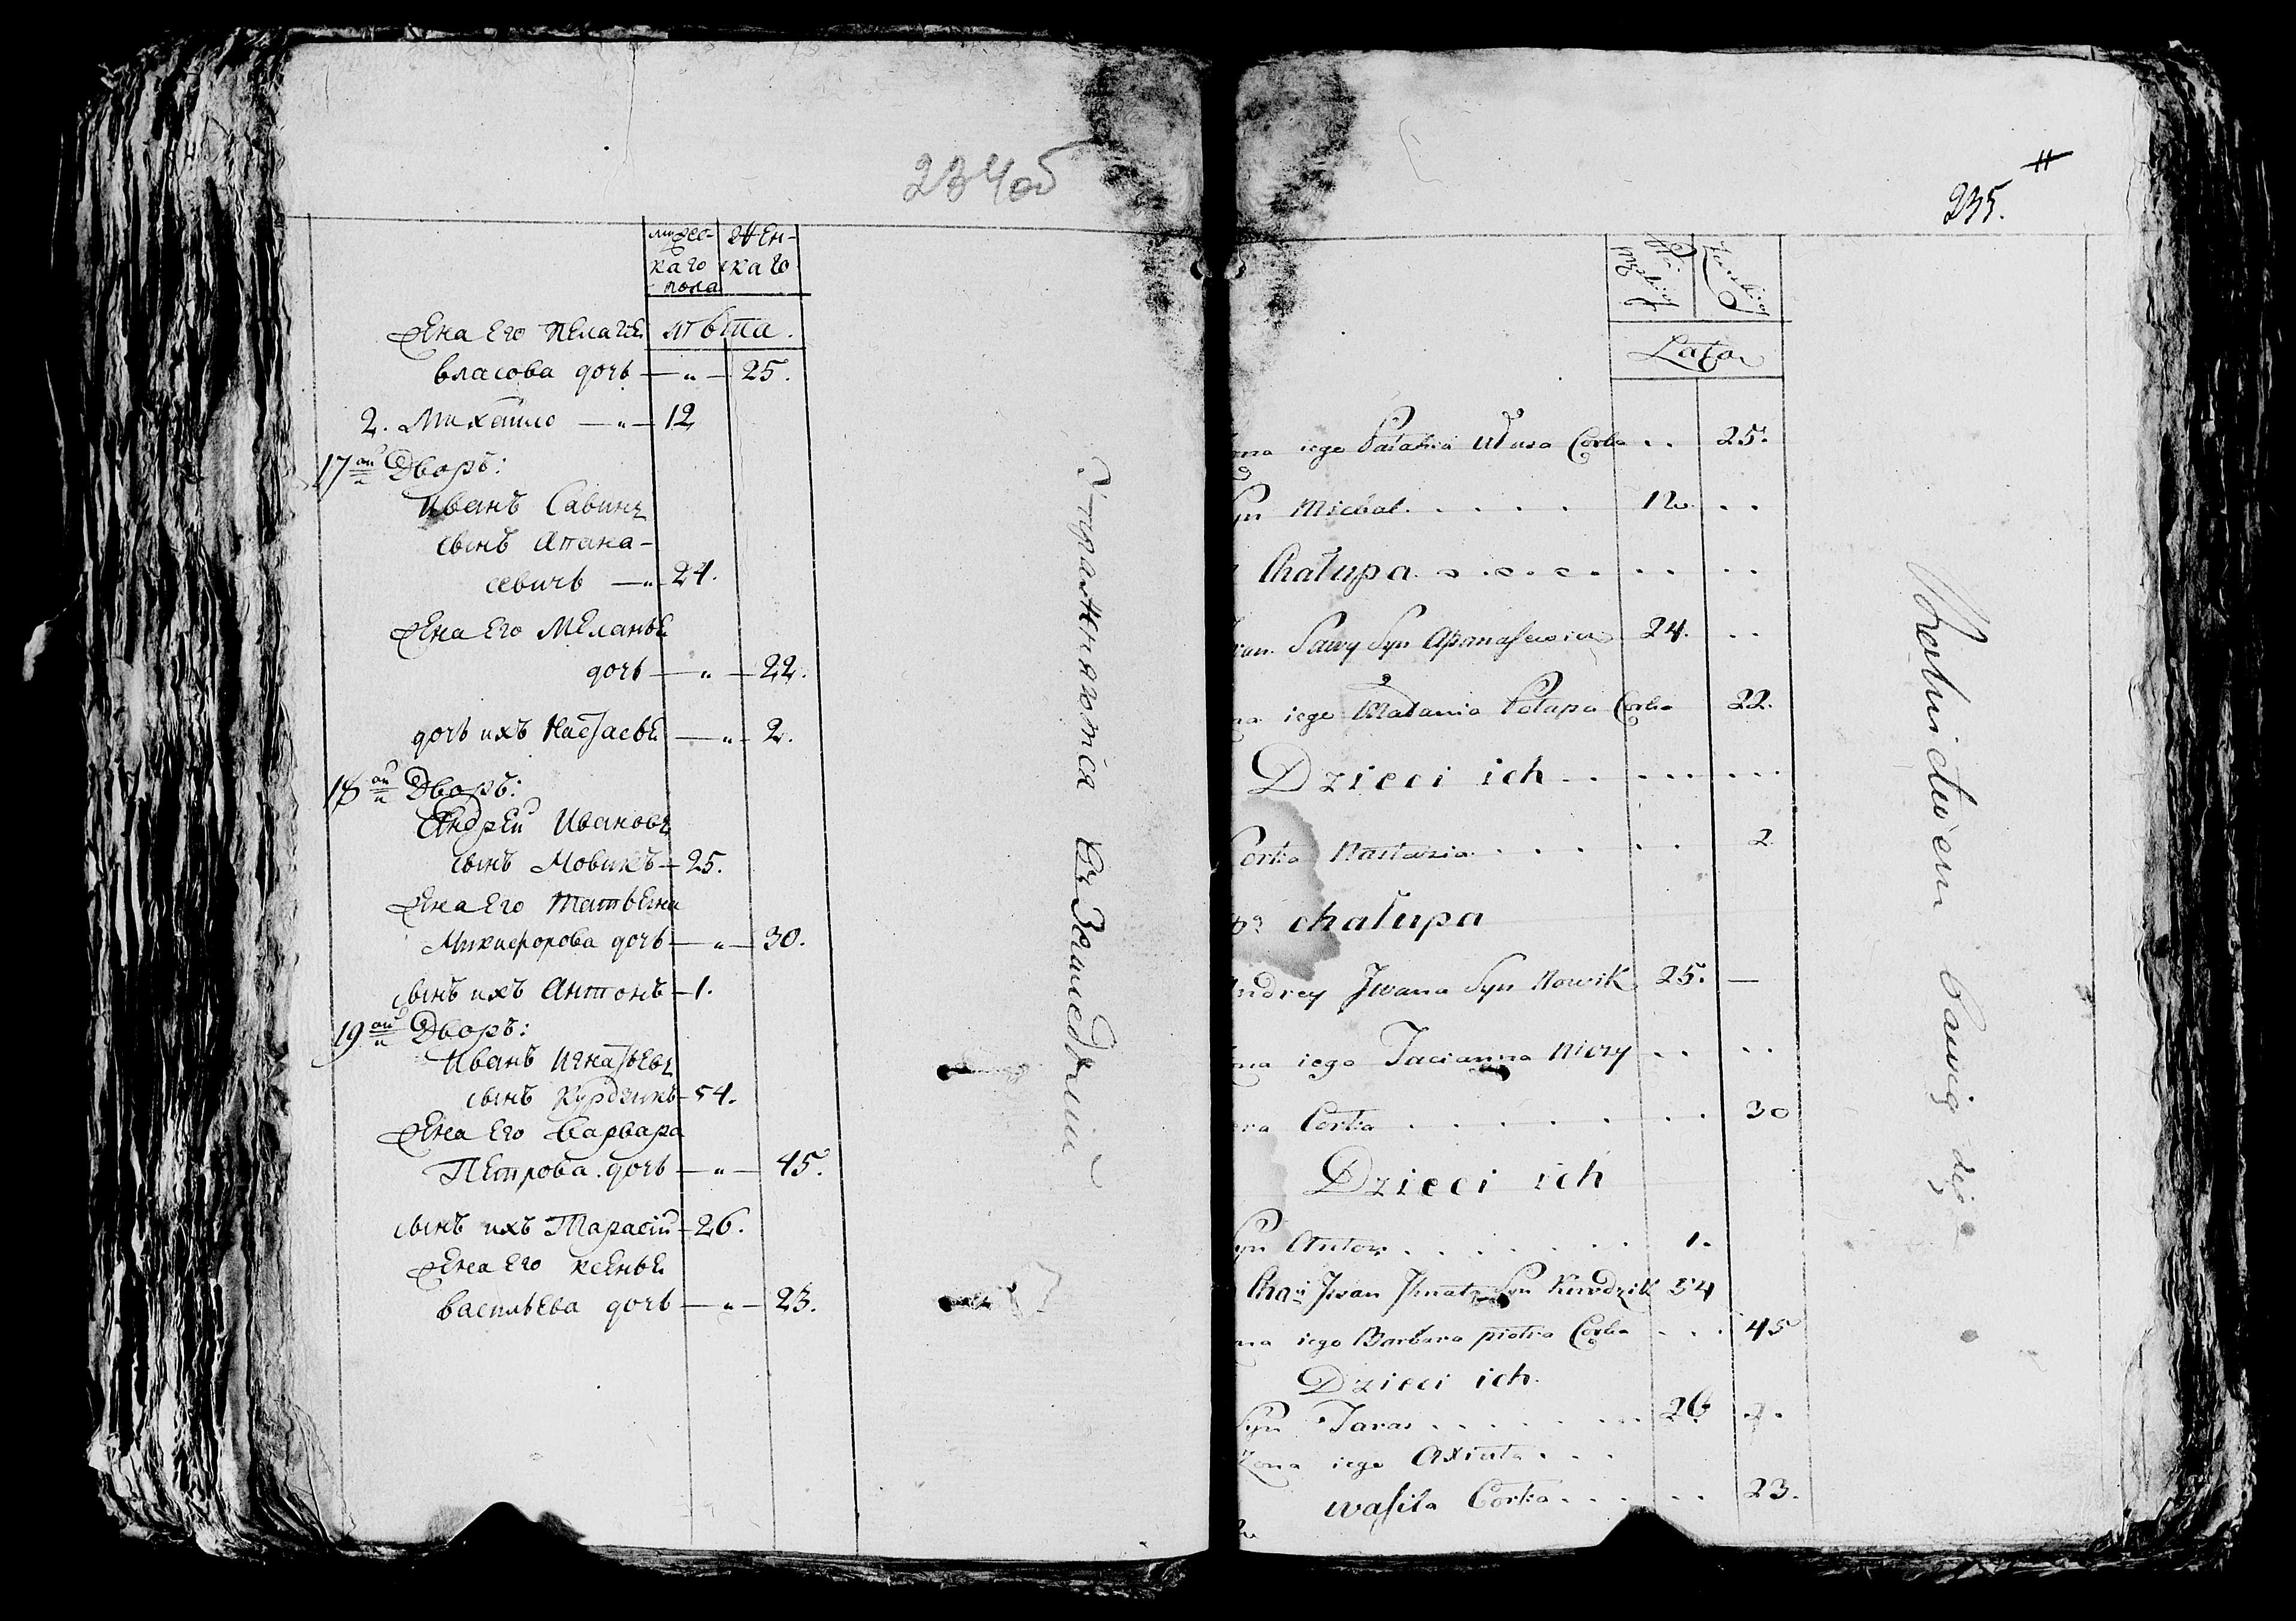 234об
мужес- Жен-
каго скаго
пола
лѣта.
Жена Его Пелагѣя
Власова дочь — „ — 25.
2. Михайло — „ — 12
17ой Дворъ:
Иванъ Савинъ
сынъ Апана-
севичъ — „ 24.
Жена Его Меланья
дочь — „ — 22.
дочь ихъ Настасья — „ — 2.
18ой Дворъ:
Андрей Ивановъ
сынъ Новикъ — 25.
Жена Его Татьяна
Микифорова дочь — „ — 30.
сынъ ихъ Антонъ — 1.
19ой Дворъ:
Иванъ Игнатьевъ
сынъ Курдзикъ — 54.
Жена Его Варвара
Петрова дочь — „ — 45.
сынъ ихъ Тарасій — 26.
Жена Его Ксенья
Васильева дочь — „ — 23.
Упражняютса Въ Земледѣліи
235.
Męskiej Żeńskiej
Lata
ona iego Pałahia Własa Corka . . 25.
Syn Michał . . . . . 12 . .
Chałupa . . . . . .
Iwan Sawy Syn Apanasewicz 24. . .
na iego Małania Potapa Corka 22.
Dzieci ich . . . . . .
Corka Nastazia . . . . . 2
chałupa
Andrey Jwana Syn Nowik 25. —
ona iego Tacianna Niczy . . . .
ra Corka . . . . . . 30
Dzieci ich
Syn Anton . . . . . . 1.
Cha: Jwan Jhnata Syn Kurdzik 54
na iego Barbara piotra Corka . . . 45
Dzieci ich
Syn Taras . . . . . . 26
Zona iego Axiuta . . .
wasila Corka . . . . . 23.
Rolnictwem bawią się